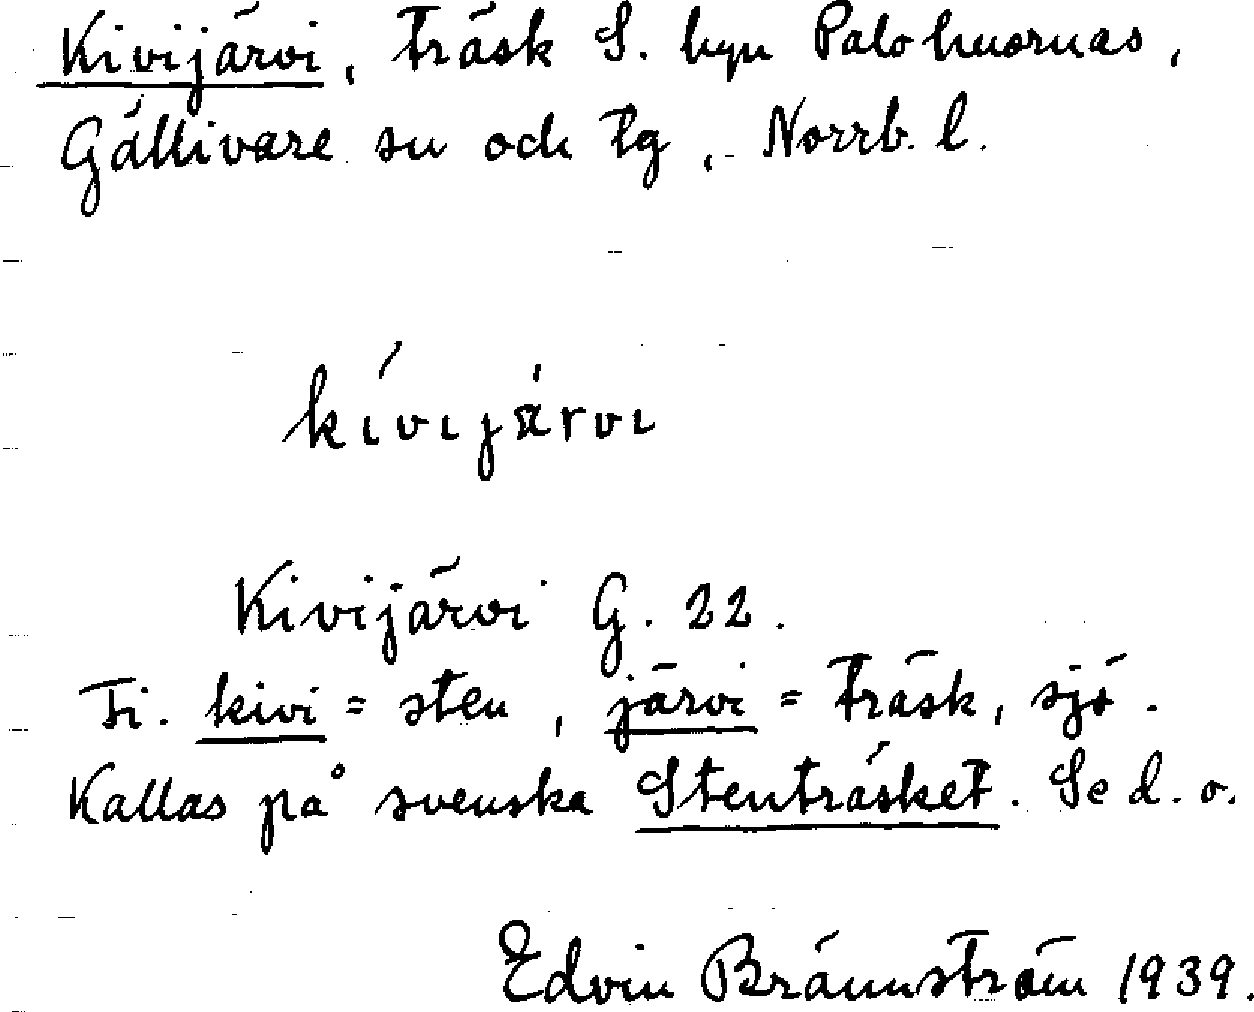 Kivijärvi, träsk S. byn Palohuornas,
Gällivare sn och tg, Norrb. l.
kívijä́rvi
Kivijärvi G. 22.
Fi. kivi = sten, järvi = träsk, sjö.
Kallas på svenska Stenträsket. Se d. o.
Edvin Brännström 1939.